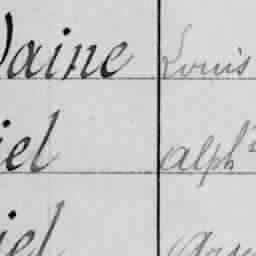 Vaine Louis
iel alph
iel